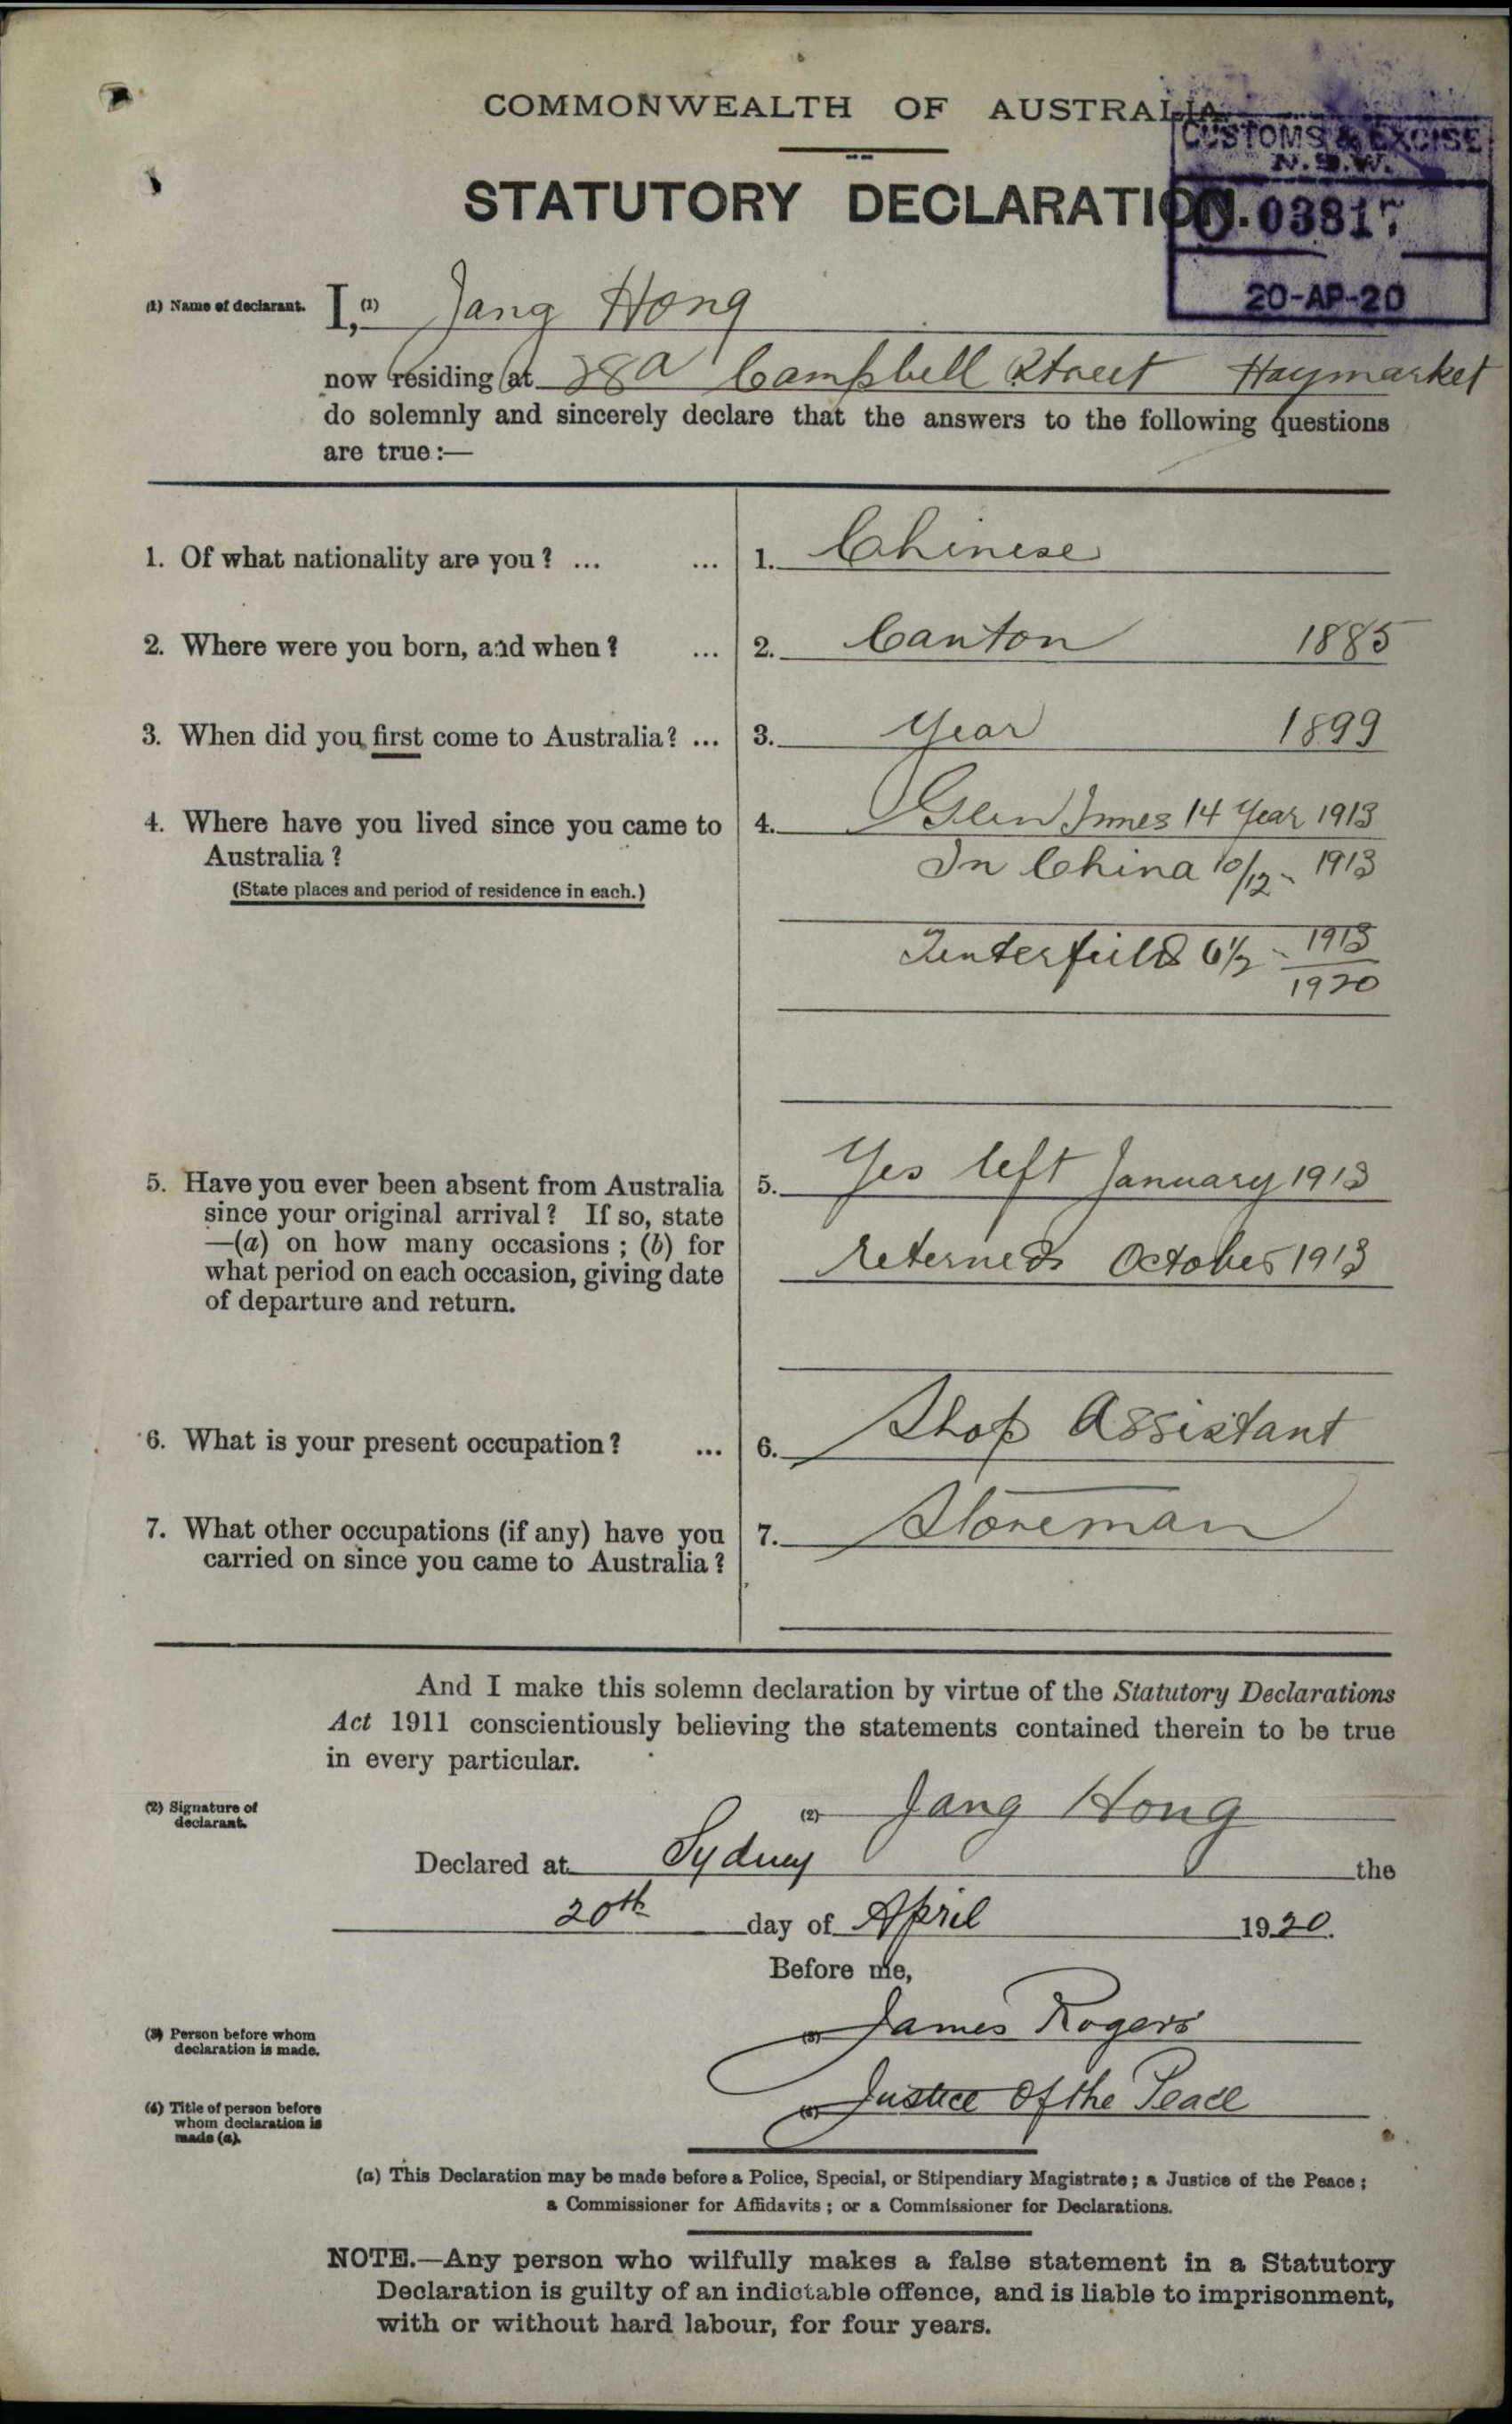 COMMONWEALTH OF AUSTRALIA
CUSTOMS & EXCISE
N.S.W.
STATUTORY DECLARATION.
03817
20-AP-20
(1) Name of declarant. I, (1) Jang Hong
now residing at 28a Campbell Street Haymarket
do solemnly and sincerely declare that the answers to the following questions
are true:—
1. Of what nationality are you? ... ... 1. Chinese
2. Where were you born, and when? ... 2. Canton 1885
3. When did you first come to Australia? ... 3. Year 1899
4. Where have you lived since you came to 4. Glen Innes 14 Year 1913
Australia? In China 10/12 - 1913
(State places and period of residence in each.)
Tenterfield 6½ - 1913
1920
5. Have you ever been absent from Australia 5. Yes left January 1913
since your original arrival? If so, state
—(a) on how many occasions; (b) for returned October 1913
what period on each occasion, giving date
of departure and return.
6. What is your present occupation? ... 6. Shop Assistant
7. What other occupations (if any) have you 7. Storeman
carried on since you came to Australia?
And I make this solemn declaration by virtue of the Statutory Declarations
Act 1911 conscientiously believing the statements contained therein to be true
in every particular.
(2) Signature of (2) Jang Hong
declarant.
Declared at Sydney the
20th day of April 1920.
Before me,
(3) Person before whom (3) James Rogers
declaration is made.
(4) Title of person before (4) Justice Of the Peace
whom declaration is
made (a).
(a) This Declaration may be made before a Police, Special, or Stipendiary Magistrate; a Justice of the Peace;
a Commissioner for Affidavits; or a Commissioner for Declarations.
NOTE.—Any person who wilfully makes a false statement in a Statutory
Declaration is guilty of an indictable offence, and is liable to imprisonment,
with or without hard labour, for four years.